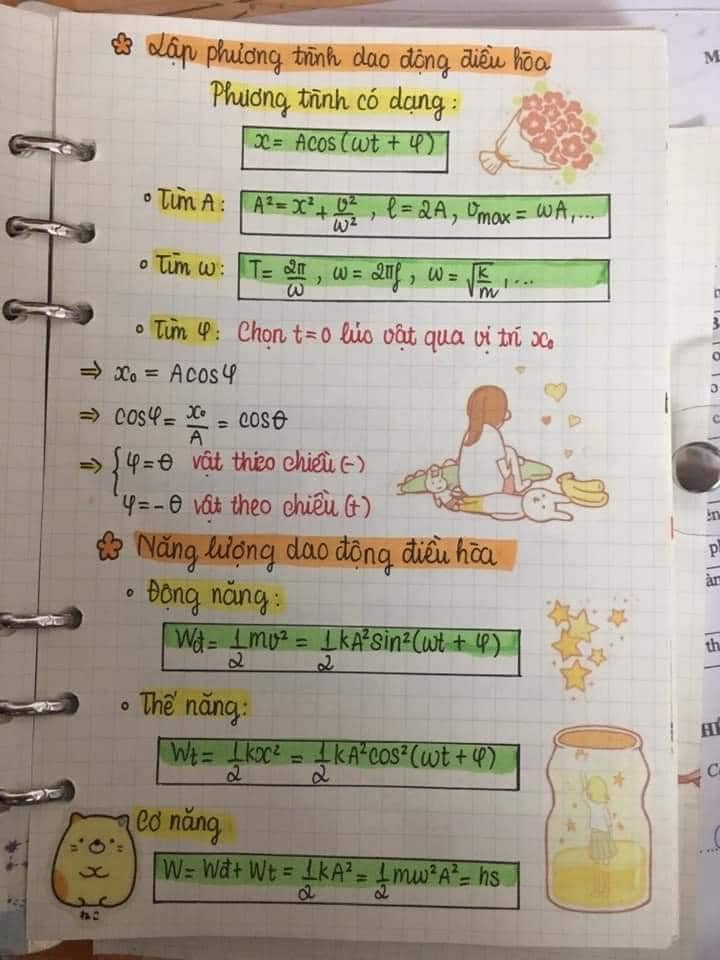 Lập phương trình dao động điều hòa
Phương trình có dạng:
x = Acos(ωt + φ)
• Tìm A: A² = x² + v²/ω², l = 2A, vmax = ωA,...
• Tìm ω: T = 2π/ω, ω = 2πf, ω = √(k/m),...
• Tìm φ: Chọn t=0 lúc vật qua vị trí x₀
⇒ x₀ = Acosφ
⇒ cosφ = x₀/A = cosθ
⇒ { φ = θ vật theo chiều (-)
φ = -θ vật theo chiều (+)
Năng lượng dao động điều hòa
• Động năng:
Wđ = 1/2 mv² = 1/2 kA²sin²(ωt + φ)
• Thế năng:
Wt = 1/2 kx² = 1/2 kA²cos²(ωt + φ)
Cơ năng
W = Wđ + Wt = 1/2 kA² = 1/2 mω²A² = hs
ねこ